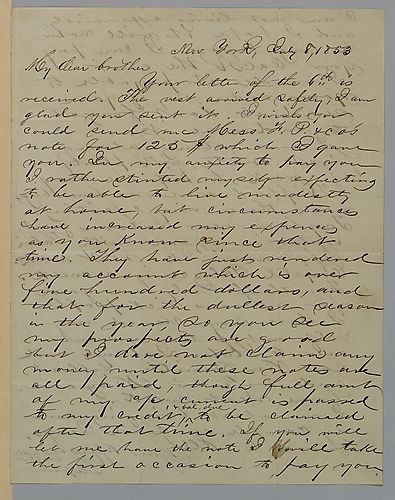 New York, July 8, 1853
My dear brother
Your letter of the 6th is
received. The vest arrived safely, I am
glad you sent it. I wish you
could send me Mess F. P. & cos
note for 125 $ which I gave
you. In my anxiety to pay you
I rather stinted myself expecting
to be able to live modestly
at home, but circumstances
have increased my expences
as you know since that
time. They have just rendered
my account which is over
five hundred dollars, and
that for the dullest season
in the year, so you see
my prospects are good
but I dare not claim any
money until these notes are
all paid, though full amt
of my current is passed
to my credit, & bal. due to be claimed
after that time. If you will
let me have the note I will take
the first occasion to pay you